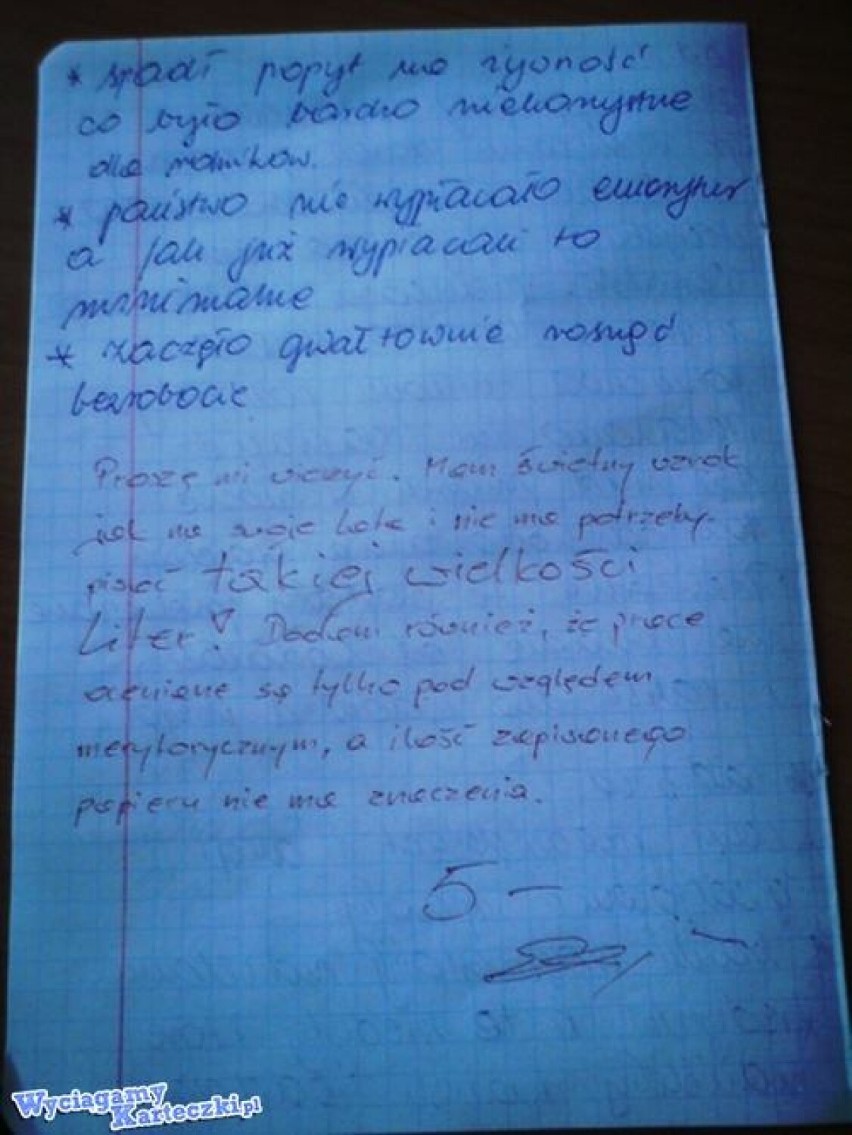 * spadł popyt na żywność
co było bardzo niekorzystne
dla rolników.
* państwo nie wypłacało emerytur
a jak już wypłacali to
minimalne
* zaczęło gwałtownie rosnąć
bezrobocie
Proszę mi wierzyć. Mam świetny wzrok
jak na swoje lata i nie ma potrzeby
pisać takiej wielkości
Liter! Dodam również, że prace
oceniane są tylko pod względem
merytorycznym, a ilość zapisanego
papieru nie ma znaczenia.
5-
Wyciągamy
Karteczki.pl